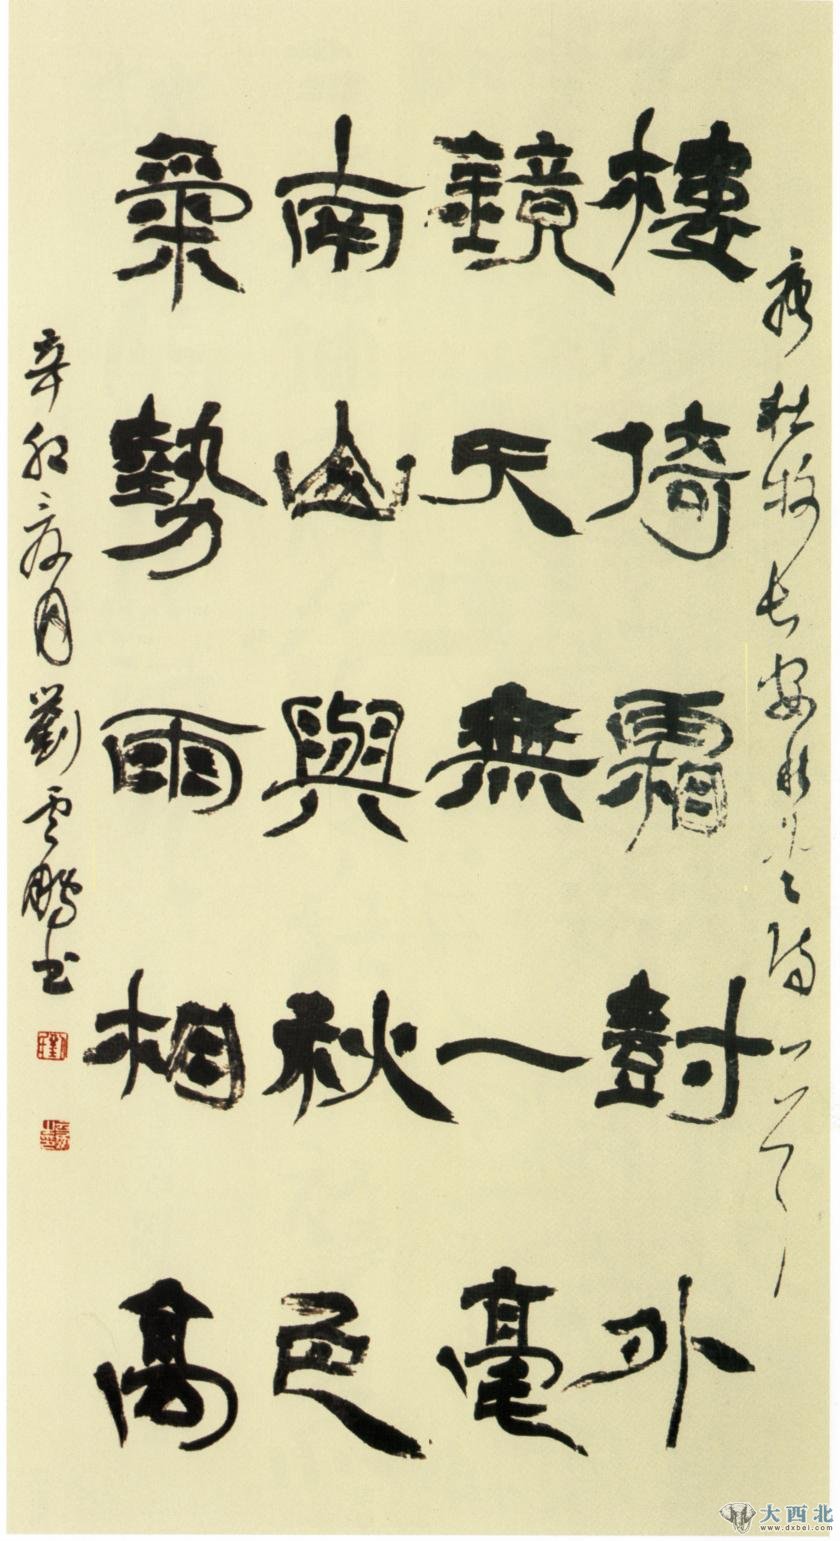 唐杜牧长安秋望诗一首
樓倚霜尌外
鏡天無一毫
南山與秋色
氣勢兩相高
辛卯夏月劉雲鵬书
大西北
www.dxbei.com